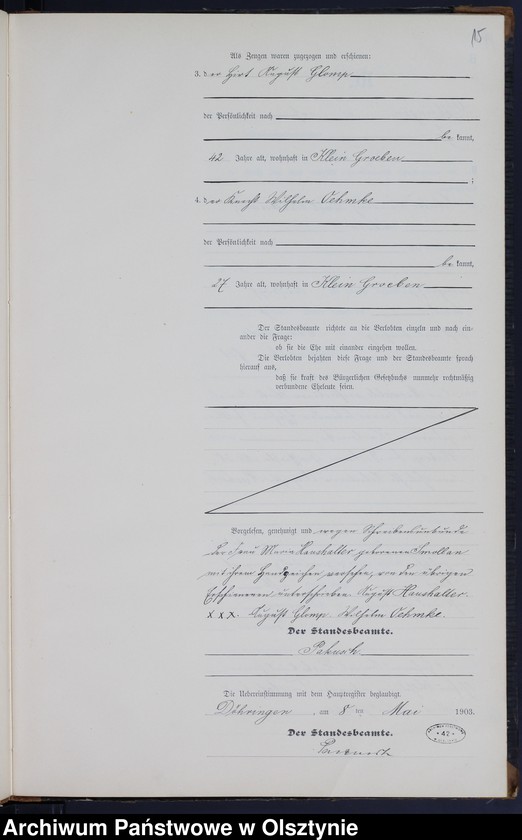 15
Als Zeugen waren zugezogen und erschienen:
3. der Hirt August Glomp
der Persönlichkeit nach
be kannt,
42 Jahre alt, wohnhaft in Klein Groeben
;
4. der Knecht Wilhelm Oehmke
der Persönlichkeit nach
be kannt,
27 Jahre alt, wohnhaft in Klein Groeben
Der Standesbeamte richtete an die Verlobten einzeln und nach ein-
ander die Frage:
ob sie die Ehe mit einander eingehen wollen.
Die Verlobten bejahten diese Frage und der Standesbeamte sprach
hierauf aus,
daß sie kraft des Bürgerlichen Gesetzbuchs nunmehr rechtmäßig
verbundene Eheleute seien.
Vorgelesen, genehmigt und wegen Schreibensunkunde
der Frau Maria Haushalter geborenen Smollan
mit ihrem Handzeichen versehen, von den übrigen
Erschienenen unterschrieben. August Haushalter.
x x x. August Glomp. Wilhelm Oehmke.
Der Standesbeamte.
Die Uebereinstimmung mit dem Hauptregister beglaubigt.
Döhringen, am 8 ten Mai 1903.
Der Standesbeamte.
* 42 *
Archiwum Państwowe w Olsztynie